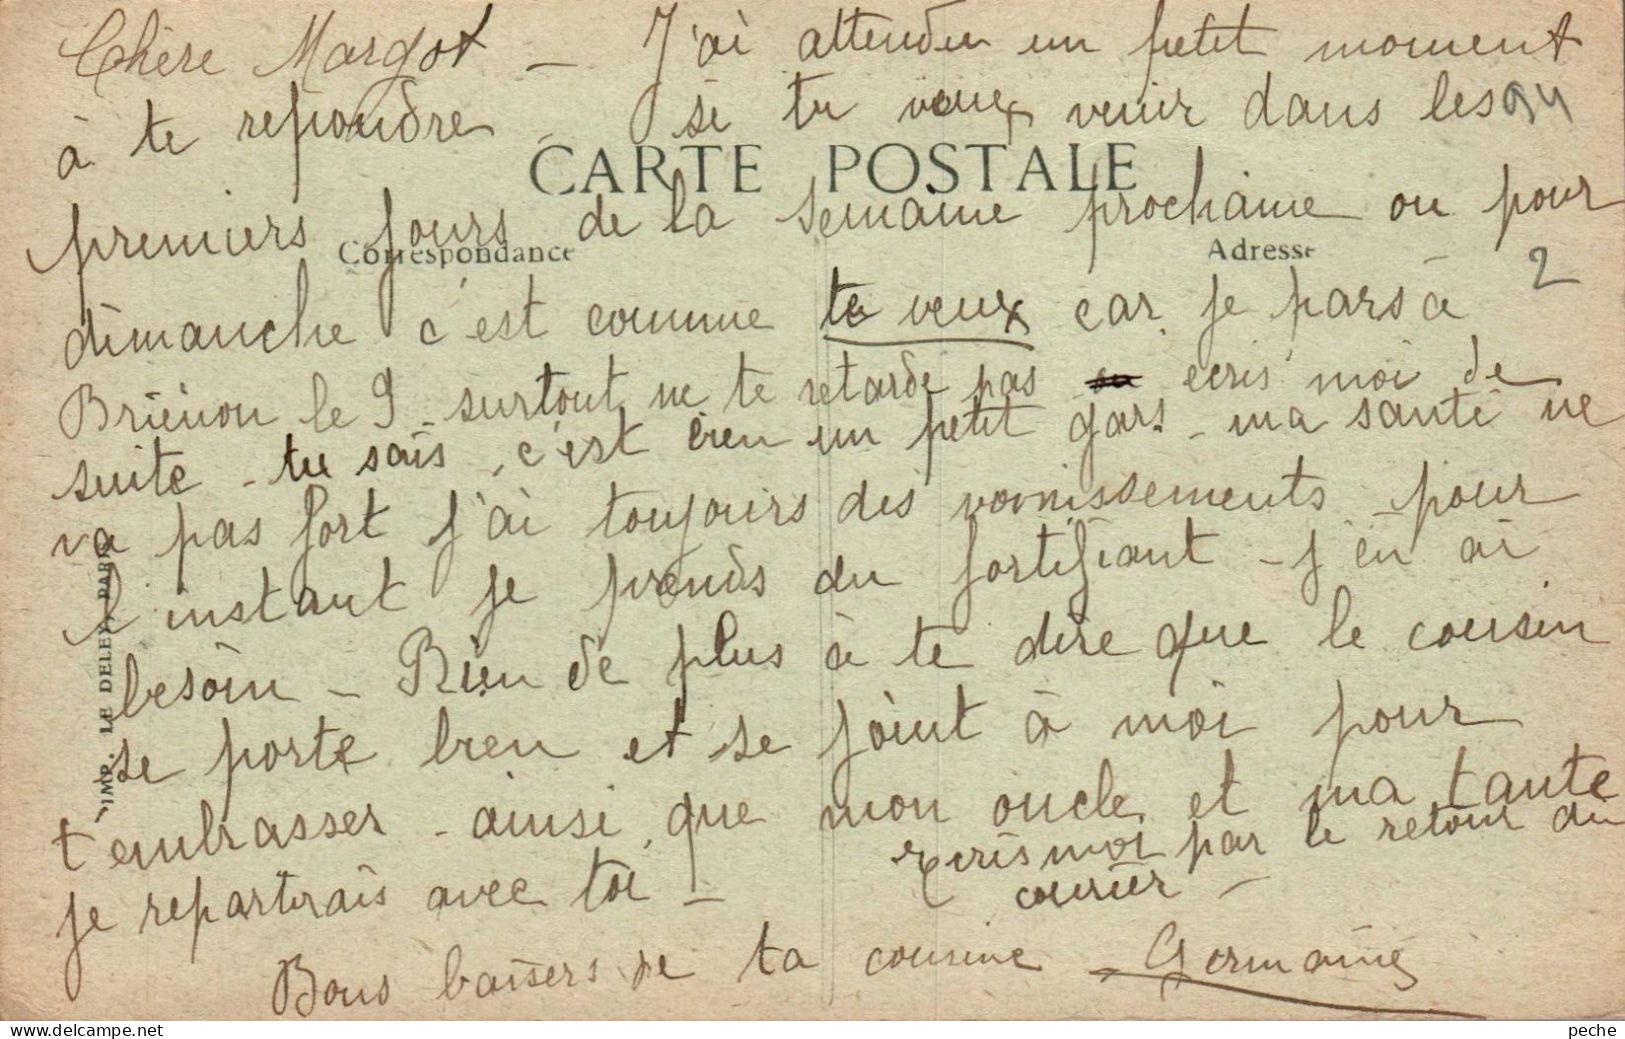 Chère Margot – J'ai attendu un petit moment
à te repondre – si tu veux venir dans les 94
CARTE POSTALE
premiers jours de la semaine prochaine ou pour
Correspondance
Adresse
2
dimanche c'est comme tu veux car je pars à
Briénon le 9 – surtout ne te retarde pas ecris moi de
suite – tu sais, c'est bien un petit gars – ma santé ne
va pas fort j'ai toujours des vomissements – pour
l'instant je prends du fortifiant – j'en ai
besoin – Rien de plus à te dire que le cousin
se porte bien et se joint à moi pour
t'embrasser – ainsi que mon oncle et ma tante
je repartirais avec toi –
Ecris moi par le retour du
courier –
Bons baisers de ta cousine – Germaine
IMP. LE DELEY, PARIS
peche
www.delcampe.net